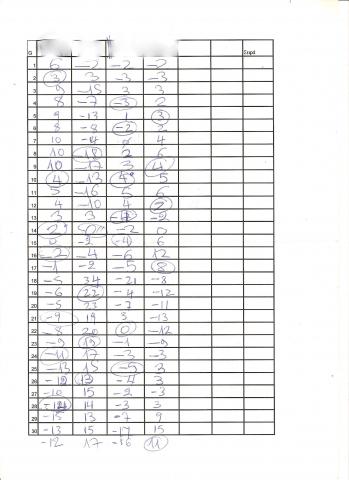 G Snpt
1 6 -2 -2 -2
2 3 3 -3 -3
3 9 -15 3 3
4 8 -7 -3 2
5 9 -13 1 3
6 8 -8 -2 2
7 10 -4 0 4
8 10 -18 2 6
9 10 -17 3 4
10 4 -13 4 5
11 5 -16 5 6
12 4 -10 4 2
13 3 3 -2
14 2 0 -2 0
15 0 -2 -4 6
16 -2 -4 -6 12
17 -1 -2 -5 8
18 -5 34 -21 -8
19 -6 22 -4 -12
20 -5 23 -7 -11
21 -9 19 3 -13
22 -8 20 0 -12
23 -9 19 -1 -9
24 -11 17 -3 -3
25 -13 15 -5 3
26 -12 13 -4 3
27 -10 15 -2 -3
28 14 -3 3
29 -15 13 -7 9
30 -13 15 -17 15
-12 17 -16 11